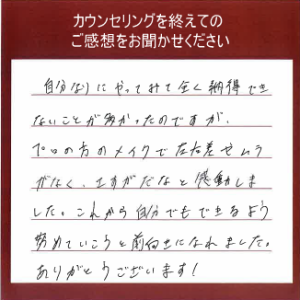 カウンセリングを終えての
ご感想をお聞かせください
自分なりにやってみて全く納得でき
ないことが多かったのですが、
プロの方のメイクで左右差やムラ
がなく、さすがだなと感動しま
した。これから自分でもできるよう
努めていこうと前向きになれました。
ありがとうございます!